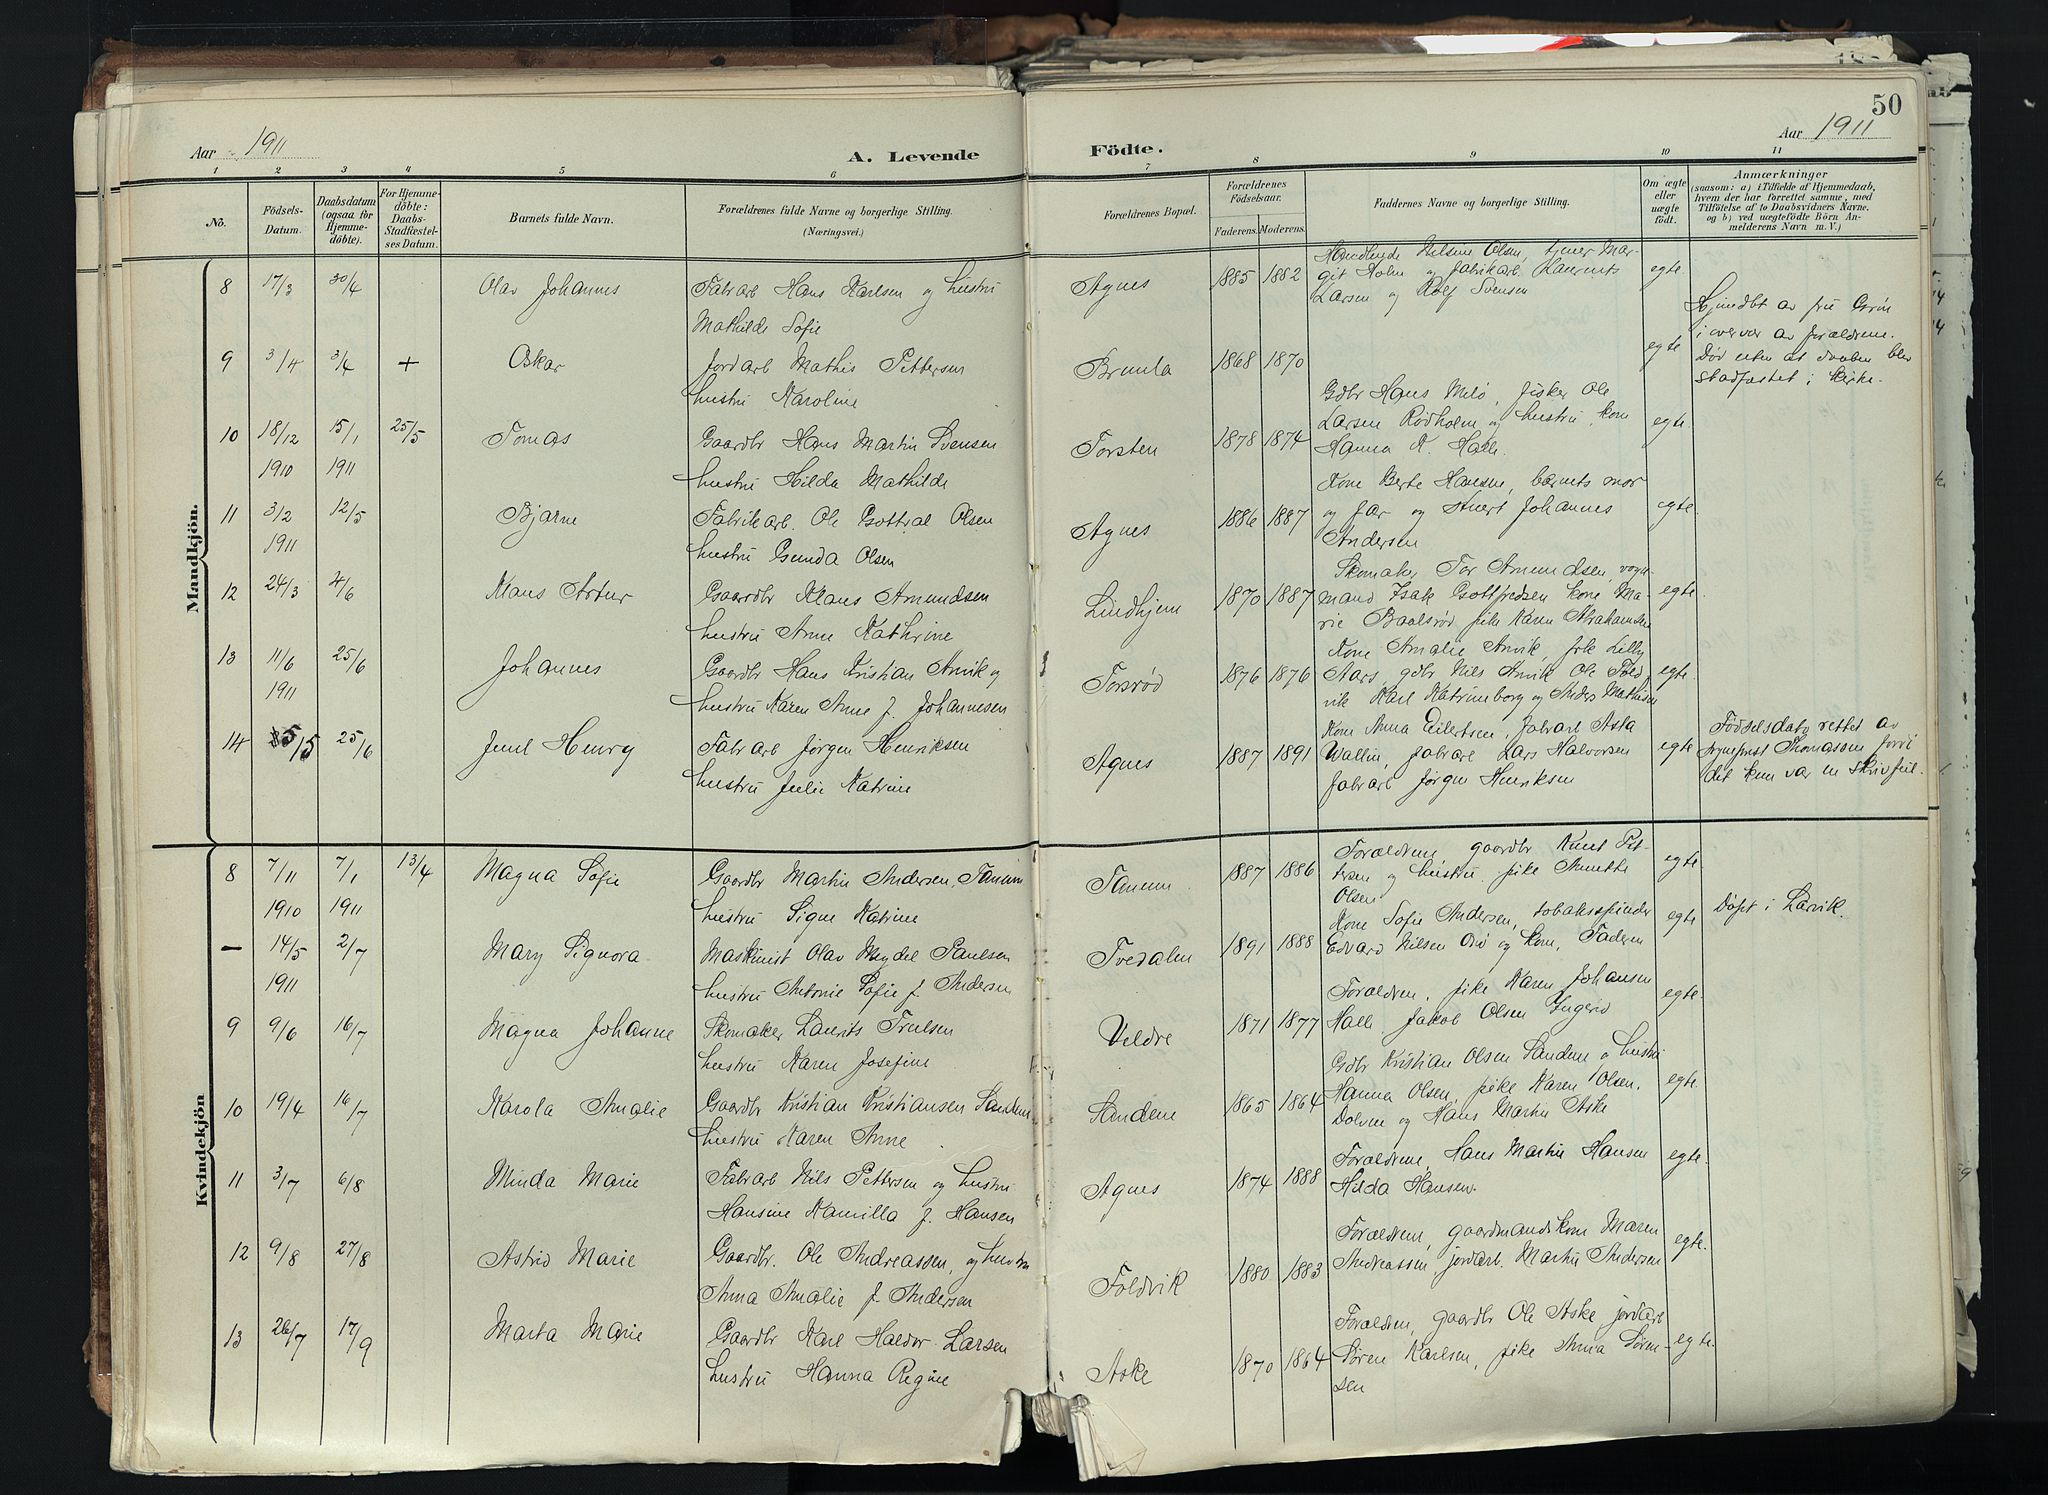 50
Aar 1911
A. Levende
Födte.
Aar 1911
1 2 3 4 5 6 7 8 9 10 11
No.
Födsels-Datum.
Daabsdatum (ogsaa for Hjemmedöbte).
For Hjemmedöbte: Daabs-Stadfæstelses Datum.
Barnets fulde Navn.
Forældrenes fulde Navne og borgerlige Stilling.
(Næringsvei.)
Forældrenes Bopæl.
Forældrenes Födselsaar.
Faderens. Moderens.
Faddernes Navne og borgerlige Stilling.
Om ægte eller uægte födt.
Anmærkninger
(saasom: a) i Tilfælde af Hjemmedaab,
hvem der har forrettet samme, med
Tilföielse af to Daabsvidners Navne.
og b) ved uægtefödte Börn An-
melderens Navn m. V.)
Mandkjön.
8 17/3 30/4 Olav Johannes Fabrarb Hans Karlsen og hustru
Mathilde Sofie
Agnes 1885 1882
Olsen, tjener Mar-
git Holm og fabrikarb. Laurits
Larsen og Rolf Svensen
egte
9 3/4 3/4 + Oskar Jordarb Mathis Pettersen
hustru Karoline
Brunla 1868 1870 egte
Hjemdbt av fru Grøn
i overvær av forældrene.
Død uten at daaben blev
stadfæstet i kirke.
10 18/12 1910 15/1 1911 25/5 Tomas Gaardbr Hans Martin Svensen
hustru Hilda Mathilde
Torsten 1878 1874
Gdbr Hans Melø, fisker Ole
Larsen Rødholm og hustru, kone
Hanna K. Halle.
egte
11 3/2 1911 12/5 Bjarne Fabrikarb. Ole Olsen
hustru Gunda Olsen
Agnes 1886 1887
Kone Berte Hansen, barnets mor
og far og Johannes
Andersen
egte.
12 24/3 4/6 Klaus Artur Gaardbr Klaus Amundsen
hustru Anne Kathrine
Lindhjem 1870 1887
Skomaker Tor Amundsen, vogn-
mand Isak Gottfredsen kone Ma-
rie Baalsrød, pike Karen Abrahamsen
egte
13 11/6 1911 25/6 Johannes Gaardbr Hans Kristian Anvik og
hustru Karen Anne f. Johannesen
Torsrød 1876 1876
Kone Amalie Anvik, frk Lilly
Aars, gdbr Nils Anvik Ole Fold-
vik Karl Katrineborg og Anders Mathisen
egte.
14 5/5 25/6 Jenel Henry Fabrarb Jørgen Henriksen
hustru Julie Katrine
Agnes 1887 1891
Kone Anna Eilertsen, fabrarb Asta
Wallin, fabrarb Lars Halvorsen
fabrarb Jørgen Henriksen
egte
Fødselsdato rettet av
sogneprest Thomassen fordi
det kun var en skrivfeil.
Kvindekjön
8 7/11 1910 7/1 1911 13/4 Magna Sofie Gaardbr Martin Andersen, Tanum
hustru Signe Katrine
Tanum 1887 1886
Forældrene, gaardbr Knut Pet-
tersen og hustru. pike Annette
Olsen
egte
— 14/5 1911 2/7 Mary Signora Maskinist Olav Magdel Paulsen
hustru Antonie Sofie f. Andersen
Tvedalen 1891 1888
Kone Sofie Andersen, tobaksspinder
Edvard Nilsen og kone, Faderen
egte
Døpt i Larvik.
9 9/6 16/7 Magna Johanne Skomaker Laurits Trulsen
hustru Karen Josefine
Veldre 1871 1877
Forældrene, pike Karen Johansen
Halle. Jakob Olsen Ingerød
egte.
10 19/4 16/7 Karola Amalie Gaardbr Kristian Kristiansen Sandene
hustru Karen Anne
Sandene 1865 1864
Gdbr Kristian Olsen Sandene og hustru
Hanna Olsen, pike Karen Olsen,
Dolven og Hans Martin Aske
egte.
11 3/7 6/8 Minda Marie Fabrarb Nils Pettersen og hustru
Hansine Kamilla f. Hansen
Agnes 1874 1888
Forældrene, Hans Martin Hansen
Hilda Hansen.
egte.
12 9/8 27/8 Astrid Marie Gaardbr. Ole Andreassen, og hustru
Anna Amalie f. Andersen
Foldvik 1880 1883
Forældrene, gaardmandskone Maren
Andreassen jordarb. Martin Andersen
egte.
13 26/7 17/9 Marta Marie Gaardbr Karl Haldor Larsen
hustru Hanna Regine
Aske 1870 1864
Forældrene, gaardbr Ole Aske jordarb
Søren Karlsen, pike Anna Søren-
sen
egte.